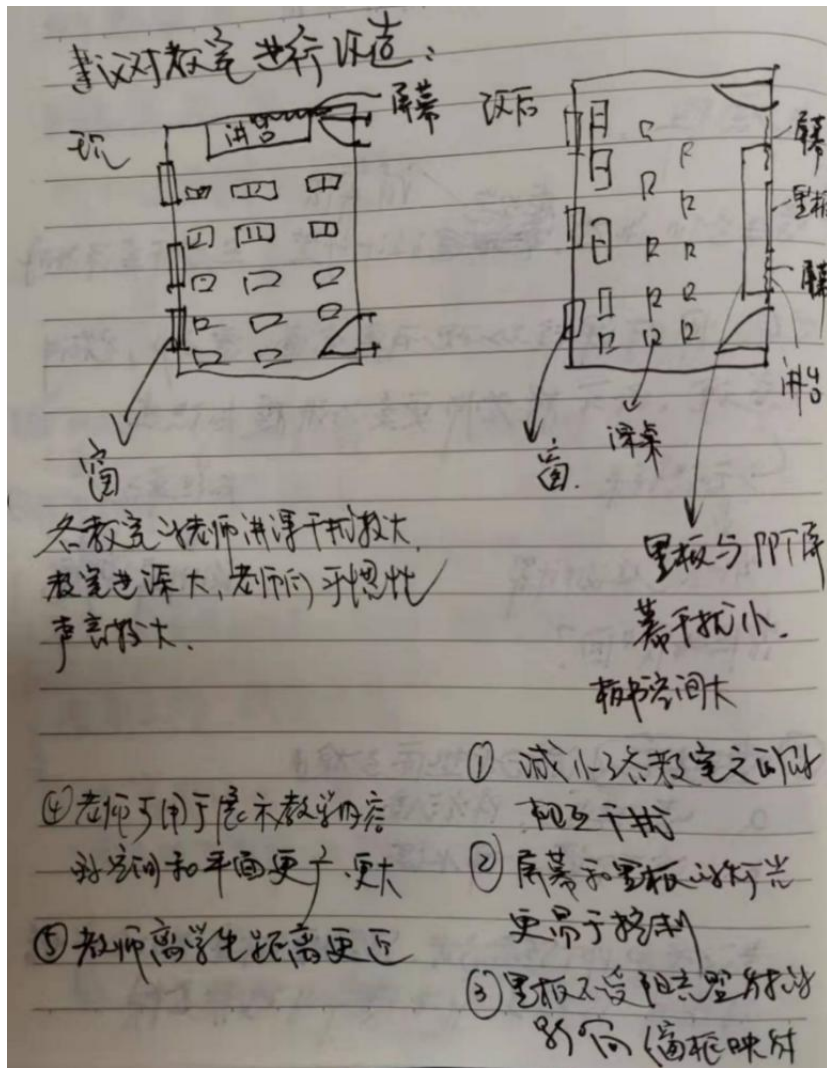 建议对教室进行改造：
现况
讲台
屏幕
改后
屏幕
黑板
屏幕
讲台
窗
窗.
课桌
各教室的老师讲课干扰较大，
教室进深大，老师们习惯性
声音较大.
黑板与PPT屏
幕干扰小.
板书空间大
① 减小了各教室之间的
相互干扰
② 屏幕和黑板的灯光
更易于控制
③ 黑板不受阳光照射的
影响（窗帘映射
④ 老师可用于展示教学内容
的空间和平面更广、更大
⑤ 教师离学生距离更近